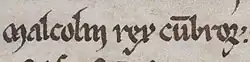 malcolm rex cu̅broꝝ.